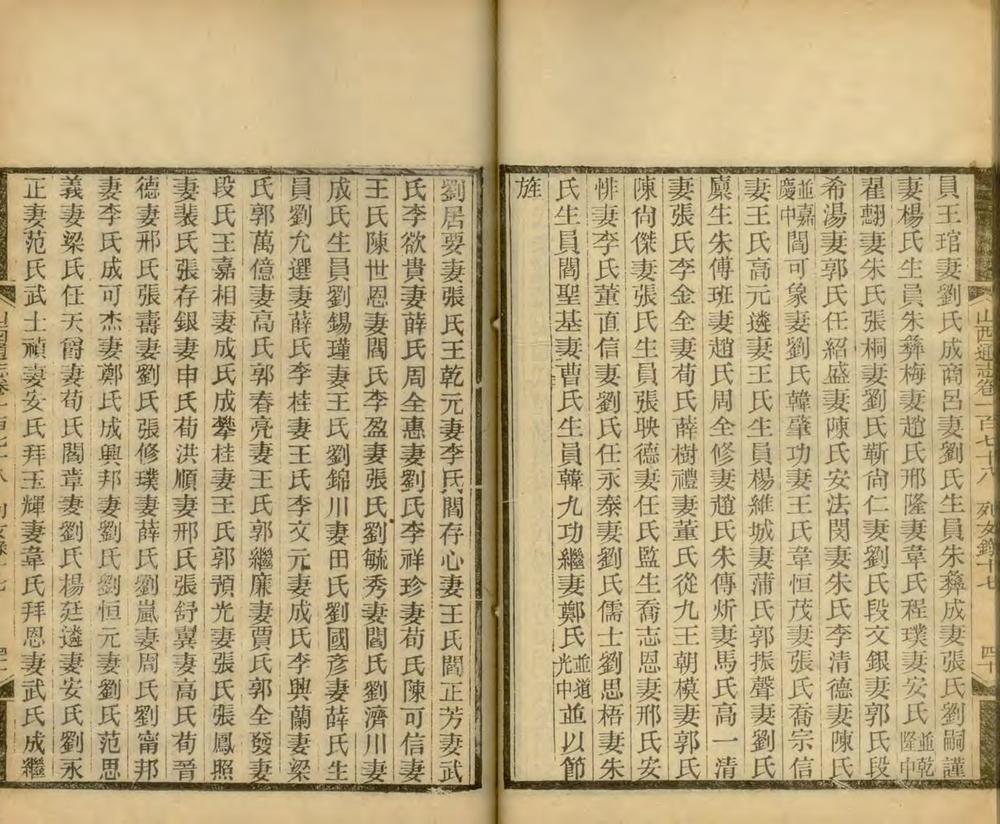 山西通志卷一百七十八 列女錄十七 四十
員王琯妻劉氏成商呂妻劉氏生員朱彝成妻張氏劉嗣謹
妻楊氏生員朱彝梅妻趙氏邢隆妻韋氏程璞妻安氏並乾隆中
翟翻妻朱氏張桐妻劉氏靳尙仁妻劉氏段文銀妻郭氏段
希湯妻郭氏任紹盛妻陳氏安法閔妻朱氏李清德妻陳氏
並嘉慶中閻可象妻劉氏韓肇功妻王氏韋恒茂妻張氏喬宗信
妻王氏高元遴妻王氏生員楊維城妻蒲氏郭振聲妻劉氏
廩生朱傅班妻趙氏周全修妻趙氏朱傅炘妻馬氏高一清
妻張氏李金全妻荀氏薛樹禮妻董氏從九王朝模妻郭氏
陳尙傑妻張氏生員張映德妻任氏監生喬志恩妻邢氏安
悱妻李氏董直信妻劉氏任永泰妻劉氏儒士劉思梧妻朱
氏生員閻聖基妻曹氏生員韓九功繼妻鄭氏並道光中並以節
旌
劉居要妻張氏王乾元妻李氏閻存心妻王氏閻正芳妻武
氏李欲貴妻薛氏周全惠妻劉氏李祥珍妻荀氏陳可信妻
王氏陳世恩妻閻氏李盈妻張氏劉毓秀妻閻氏劉濟川妻
成氏生員劉錫瑾妻王氏劉錦川妻田氏劉國彥妻薛氏生
員劉允選妻薛氏李桂妻王氏李文元妻成氏李興蘭妻梁
氏郭萬億妻高氏郭春亮妻王氏郭繼廉妻賈氏郭全發妻
段氏王嘉相妻成氏成攀桂妻王氏郭預光妻張氏張鳳照
妻裴氏張存銀妻申氏荀洪順妻邢氏張舒翼妻高氏荀晉
德妻邢氏張壽妻劉氏張修璞妻薛氏劉嵐妻周氏劉甯邦
妻李氏成可杰妻鄭氏成興邦妻劉氏劉恒元妻劉氏范思
義妻梁氏任天爵妻荀氏閻章妻劉氏楊廷遴妻安氏劉永
正妻范氏武士禎妻安氏拜玉輝妻韋氏拜恩妻武氏成繼